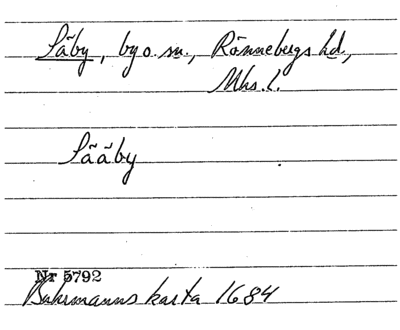 Såby, by o. sn., Rönnebergs hd.,
Mhs. l.
Sååby
Nr 5792
Buhrmanns karta 1684